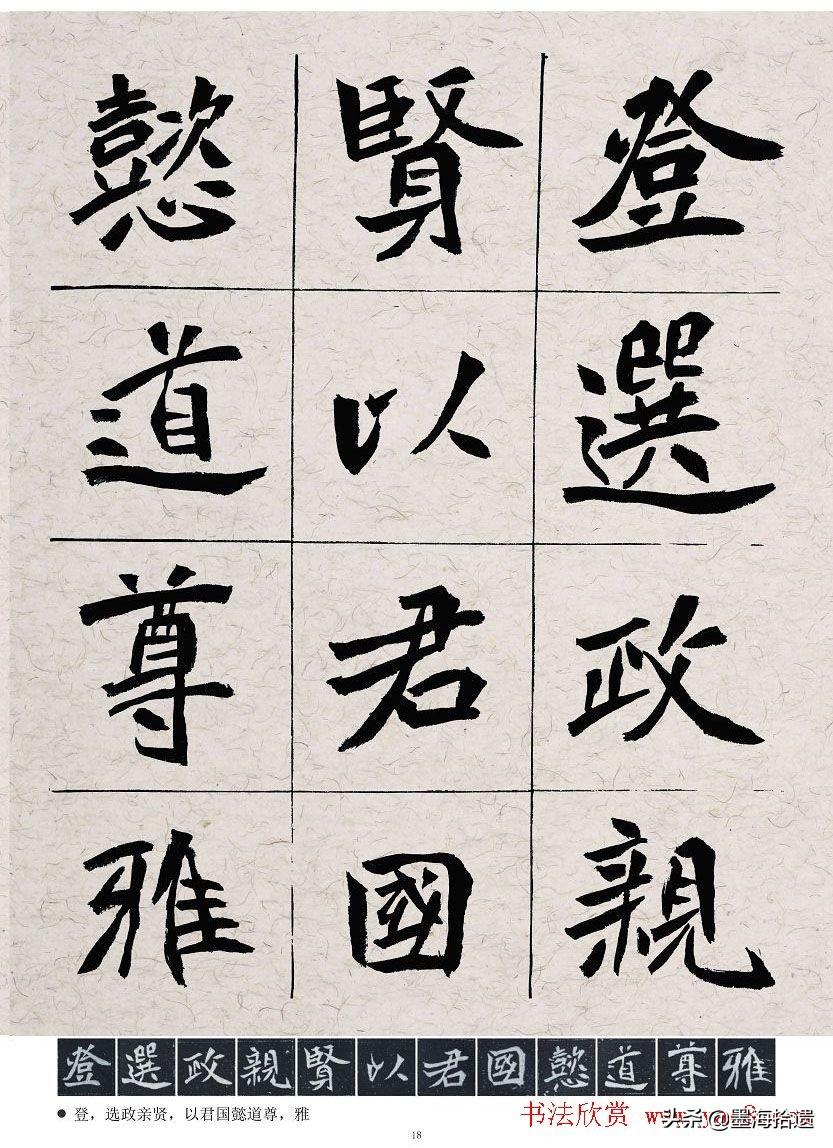 登選政親
賢以君國
懿道尊雅
登選政親賢以君國懿道尊雅
● 登，选政亲贤，以君国懿道尊，雅
书法欣赏
头条@墨海拾遗
18